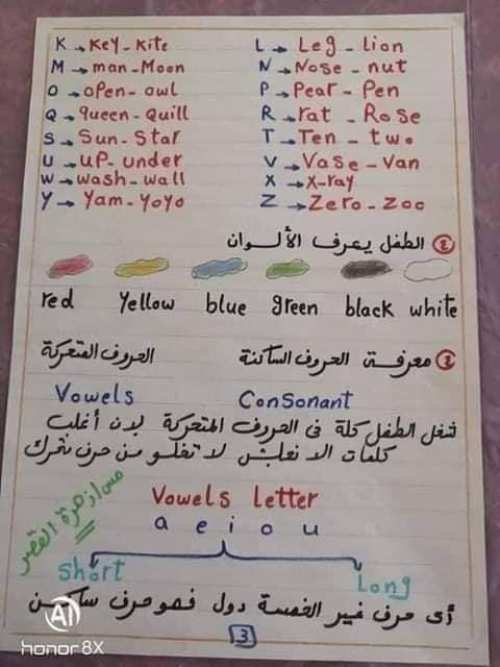 K → Key - Kite L → Leg - lion
M → man - Moon N → Nose - nut
O → open - owl P → Pear - Pen
Q → queen - Quill R → rat - Rose
S → Sun - Star T → Ten - two
U → up - under V → Vase - Van
W → wash - wall X → X-ray
Y → Yam - yoyo Z → Zero - Zoo
④ الطفل يعرف الألوان
red Yellow blue green black white
④ معرفة الحروف الساكنة الحروف المتحركة
Vowels Consonant
الطفل كلة فى الحروف المتحركة لان أغلب
كلمات الانجلش لا تخلو من حرف متحرك
مس / زهرة القصر
Vowels letter
a e i o u
Short Long
أى حرف غير الخمسة دول فهو حرف ساكن
3
AI
honor 8X